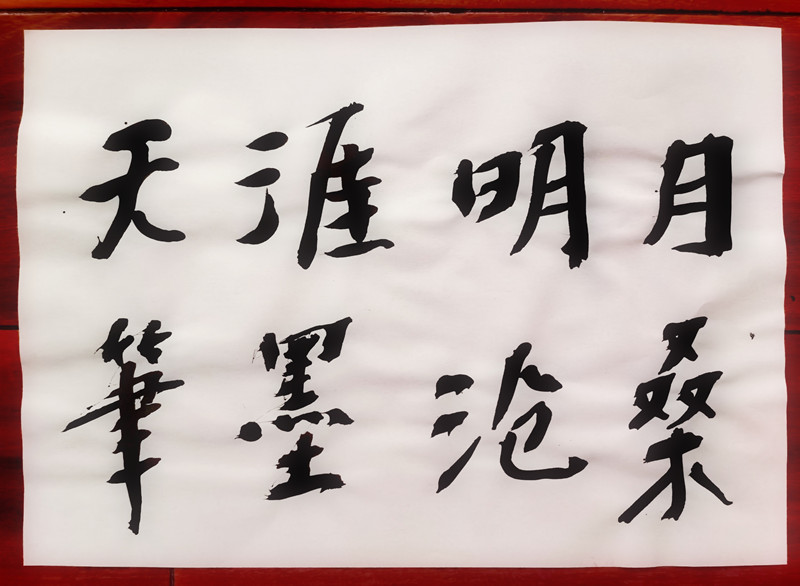 天涯明月
筆墨沧桑